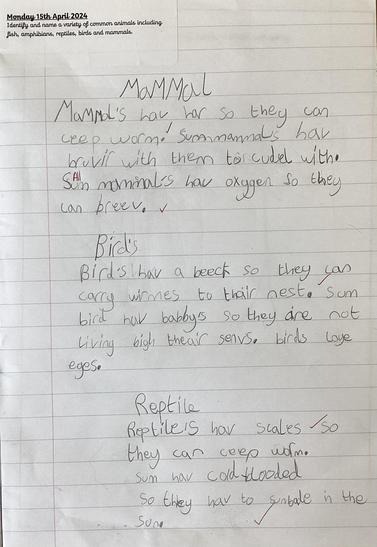 Monday 15th April 2024
Identify and name a variety of common animals including
fish, amphibians, reptiles, birds and mammals.
MaMMal
MaMMal's hav har so they can
ceep worm! Sum mammals hav
with them to cudel with.
All mammals hav oxygen so they
can breev.
Bird's
Bird's hav a beeck so they can
carry wirmes to thair nest. Sum
bird hav babbys so they are not
Living bigh theair senvs. birds laye
eges.
Reptile
Reptile's hav scales so
they can ceep worm.
sum hav cold blooded
so they hav to sunbade in the
Sun.